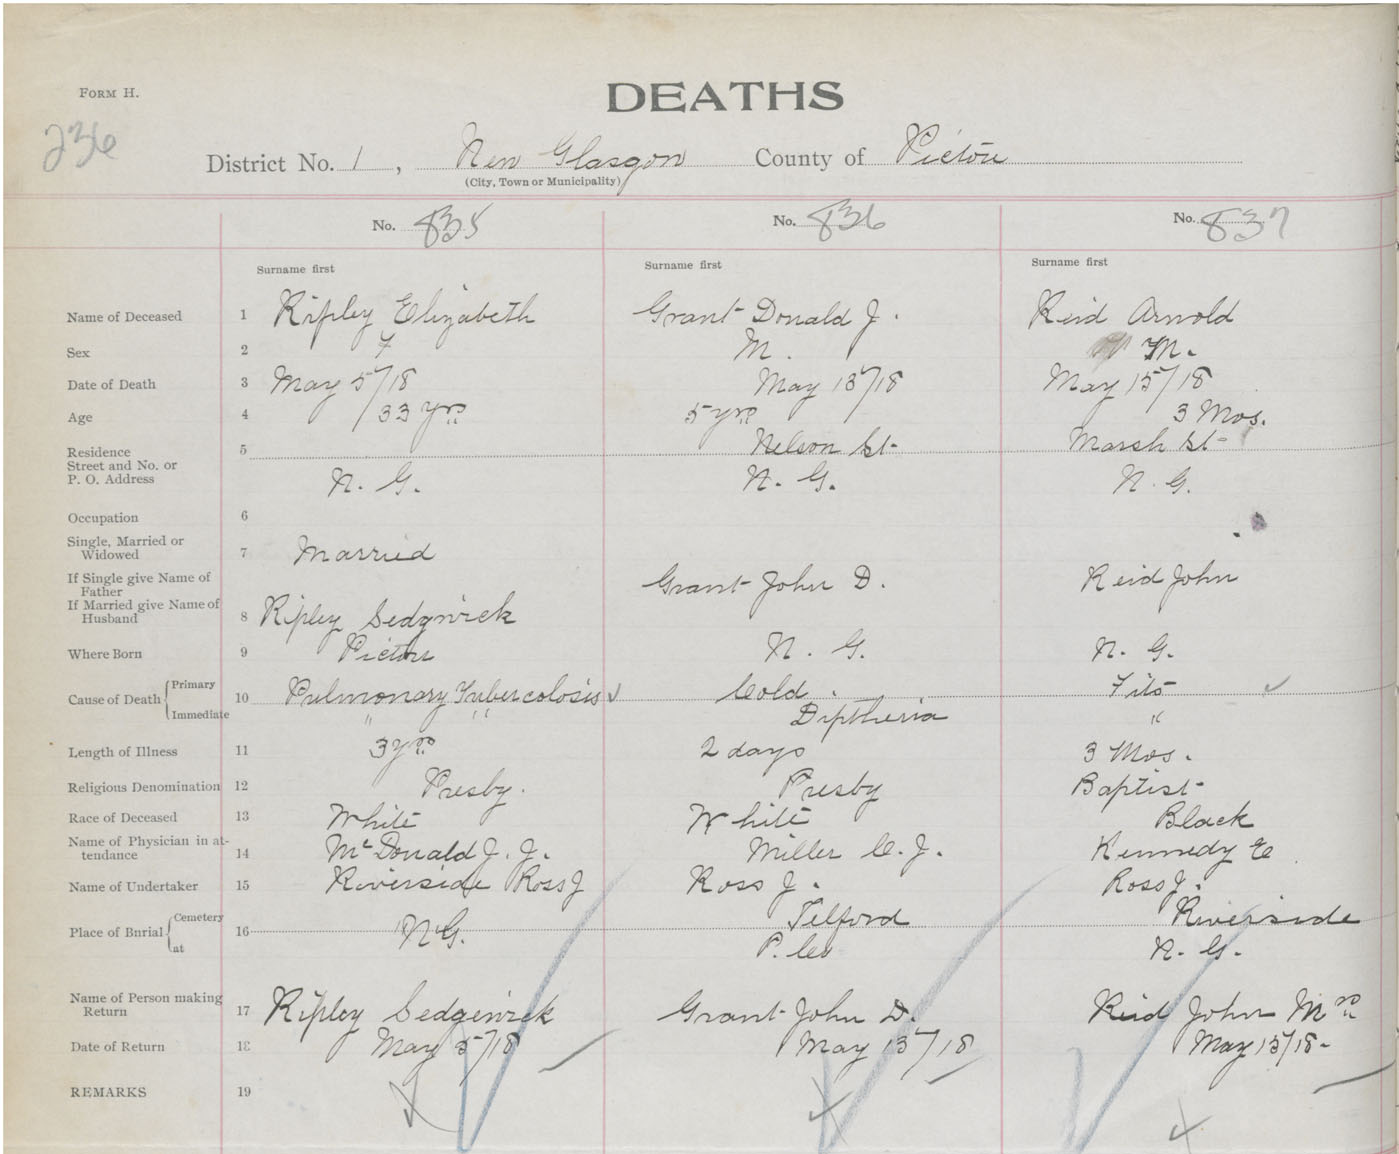 FORM H.
DEATHS
236
District No. 1, New Glasgow County of Pictou
(City, Town or Municipality)
No. 835 No. 836 No. 837
Surname first Surname first Surname first
Name of Deceased 1 Ripley Elizabeth Grant Donald J. Reid Arnold
Sex 2 F M. M.
Date of Death 3 May 5/18 May 15/18 May 15/18
Age 4 33 yrs 5 yrs 3 Mos.
Residence 5 Nelson St Marsh St
Street and No. or
P. O. Address N. G. N. G. N. G.
Occupation 6
Single, Married or
Widowed 7 Married
If Single give Name of
Father Grant John D. Reid John
If Married give Name of
Husband 8 Ripley Sedgwick
Where Born 9 Pictou N. G. N. G.
Cause of Death Primary 10 Pulmonary Tubercolosis Cold Fits
Immediate " " Diptheria "
Length of Illness 11 3 yrs 2 days 3 Mos.
Religious Denomination 12 Presby. Presby Baptist
Race of Deceased 13 White White Black
Name of Physician in at-
tendance 14 McDonald J. J. Miller C. J. Kennedy E
Name of Undertaker 15 Riverside Ross J Ross J. Ross J.
Place of Burial Cemetery 16 Telford Riverside
at N G. P. Co N. G.
Name of Person making
Return 17 Ripley Sedgewick Grant John D. Reid John Mrs
Date of Return 18 May 5/18 May 15/18 May 15/18
REMARKS 19